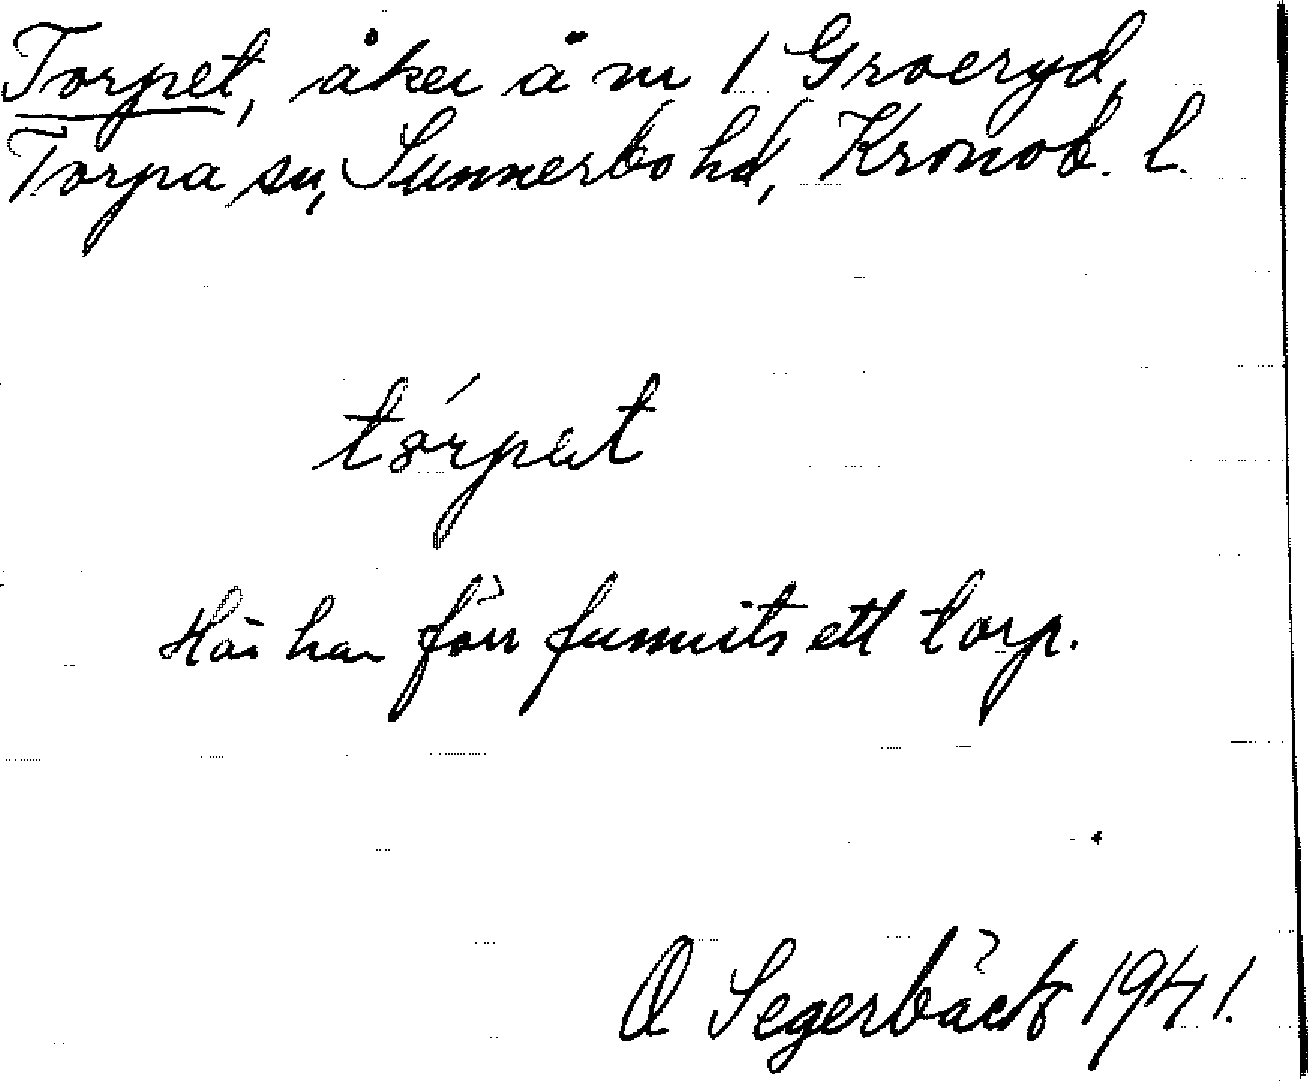 Torpet, åker å nr 1 Groeryd,
Torpa sn, Sunnerbo hd, Kronob. l.
tórpat
Här har förr funnits ett torp.
O Segerbäck 1941.